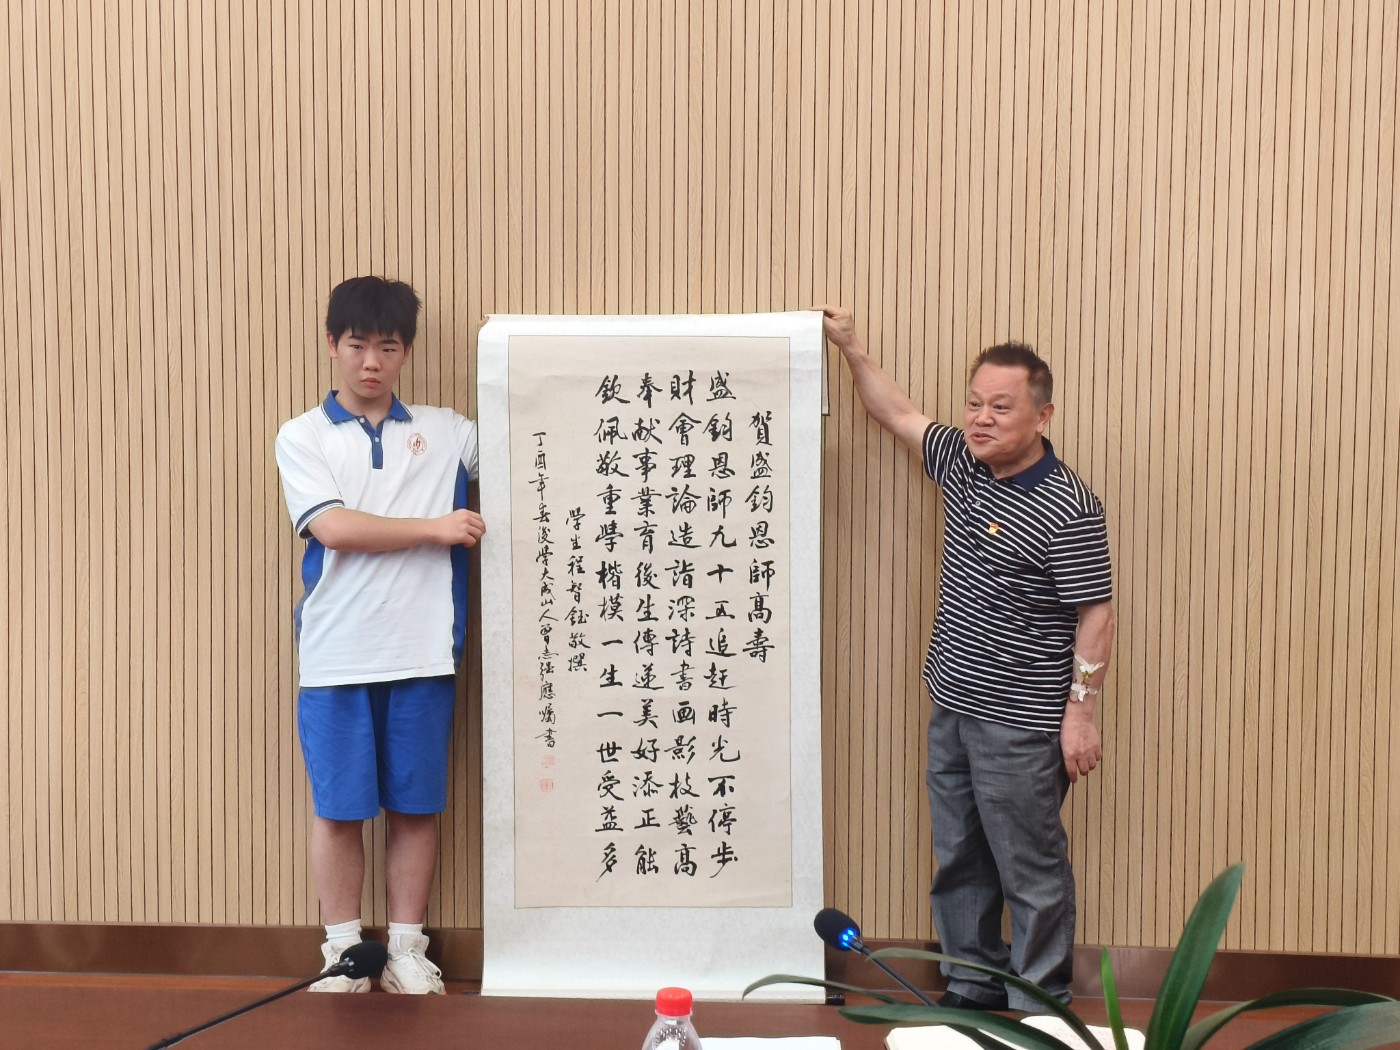 賀盛鈞恩師高壽
盛鈞恩師九十五追赶時光不停步
財會理論造詣深詩書画影技藝高
奉献事業育後生傳递美好添正能
欽佩敬重學楷模一生一世受益多
學生程智鈺敬撰
丁酉年春後學大成山人曾志强應嘱書